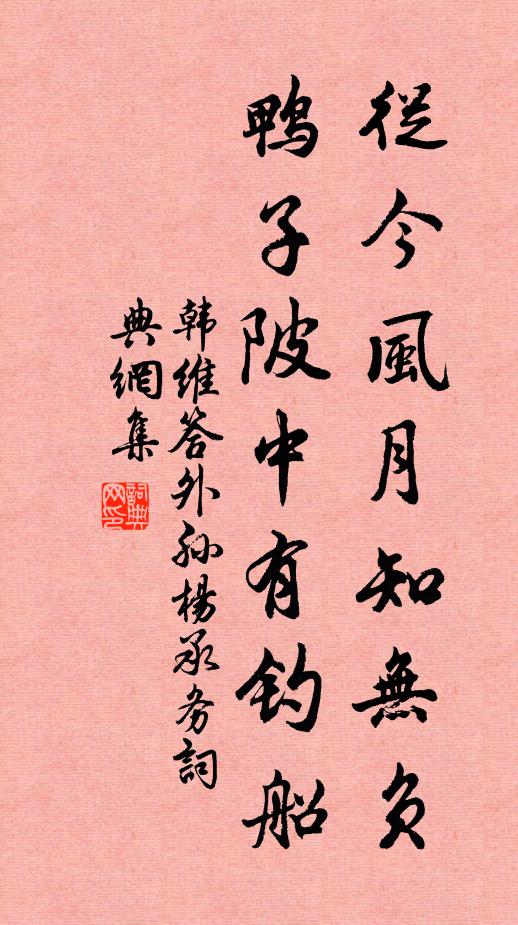 從今風月知無負
鴨子陂中有釣船
韩維答外孙楊承务詞
典網集
詞典
网印